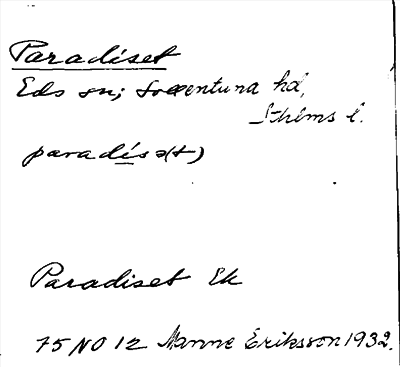 Paradiset
Eds sn; Sollentuna hd,
Sthlms l.
paradis ə(t)
Paradiset Ek
75 NO 12 Manne Eriksson 1932.